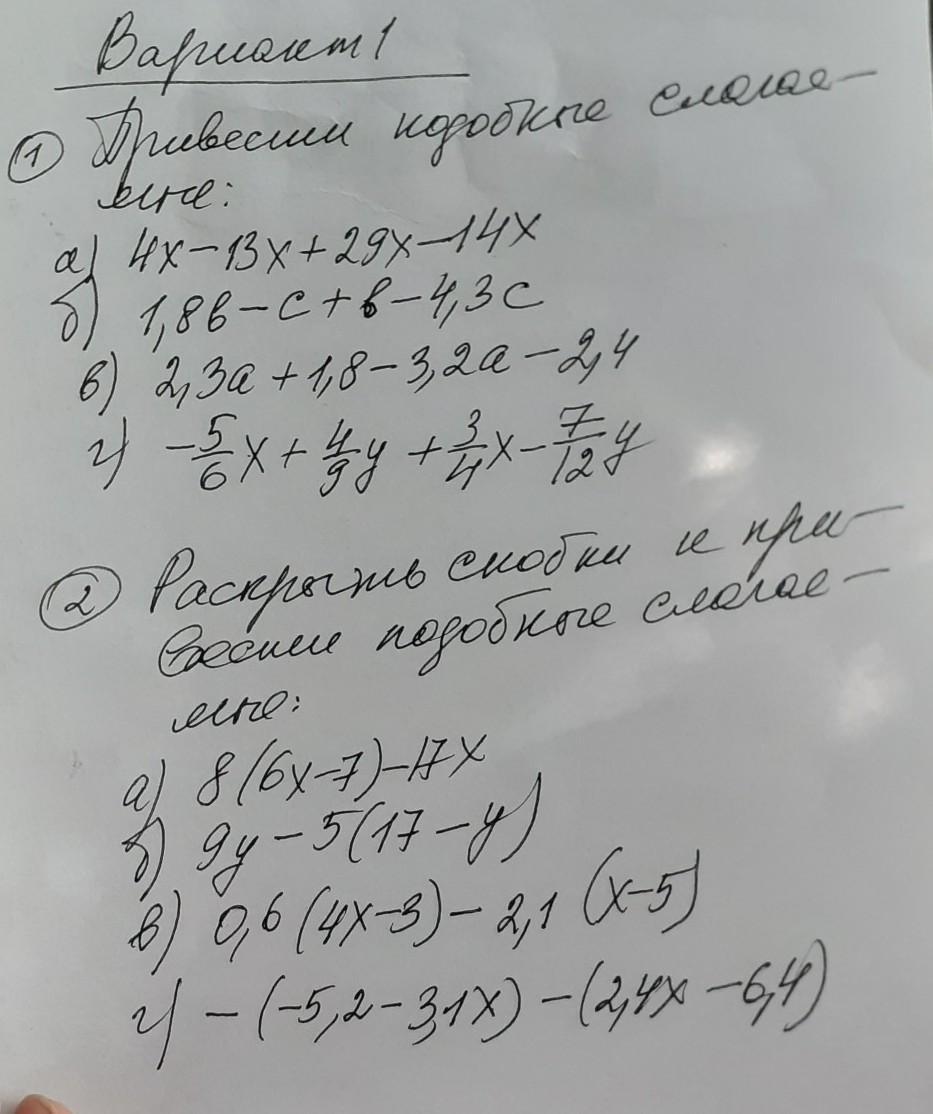 Вариант 1
① Привести подобные слагае-
мые:
а) 4x-13x+29x-14x
б) 1,8в-с+в-4,3с
в) 2,3а+1,8-3,2а-2,4
г) -5/6x+4/9y+3/4x-7/12y
② Раскрыть скобки и при-
вести подобные слагае-
мые:
а) 8(6x-7)-17x
б) 9y-5(17-y)
в) 0,6(4x-3)-2,1(x-5)
г) -(-5,2-3,1x)-(2,4x-6,4)